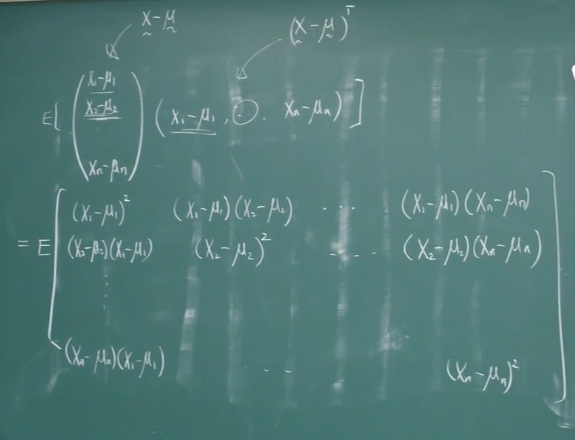 x-μ (x-μ)ᵀ
E[ (x₁-μ₁
x₂-μ₂
xₙ-μₙ) (x₁-μ₁, · · xₙ-μₙ) ]
= E [ (x₁-μ₁)² (x₁-μ₁)(x₂-μ₂) ... (x₁-μ₁)(xₙ-μₙ)
(x₂-μ₂)(x₁-μ₁) (x₂-μ₂)² .... (x₂-μ₂)(xₙ-μₙ)
⋮
(xₙ-μₙ)(x₁-μ₁) .. (xₙ-μₙ)² ]